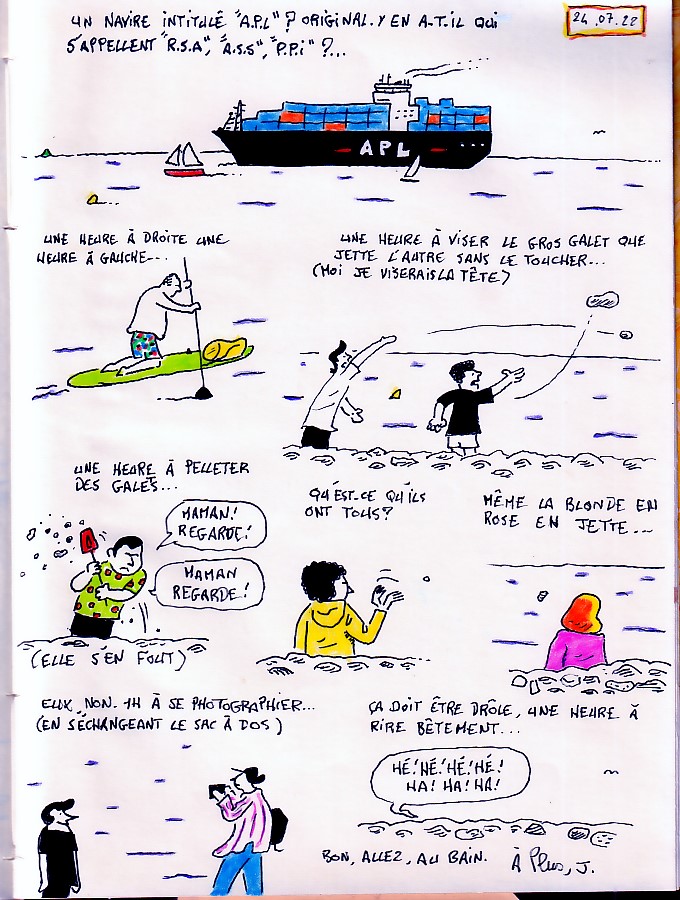 UN NAVIRE INTITULÉ "A.P.L" ? ORIGINAL. Y EN A-T-IL QUI
S'APPELLENT "R.S.A", "A.S.S", "P.P.i" ?...
24.07.22
APL
UNE HEURE À DROITE UNE
HEURE À GAUCHE...
UNE HEURE À VISER LE GROS GALET QUE
JETTE L'AUTRE SANS LE TOUCHER...
(MOI JE VISERAIS LA TÊTE)
UNE HEURE À PELLETER
DES GALETS...
MAMAN!
REGARDE!
MAMAN
REGARDE!
(ELLE S'EN FOUT)
QU'EST-CE QU'ILS
ONT TOUS?
MÊME LA BLONDE EN
ROSE EN JETTE...
EUX, NON. 1H À SE PHOTOGRAPHIER...
(EN S'ÉCHANGEANT LE SAC À DOS)
ÇA DOIT ÊTRE DRÔLE, UNE HEURE À
RIRE BÊTEMENT...
HÉ! HÉ! HÉ! HÉ!
HA! HA! HA!
BON, ALLEZ, AU BAIN.
À Plus, J.